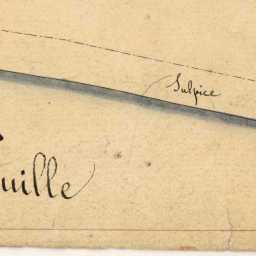 Sulpice
uille